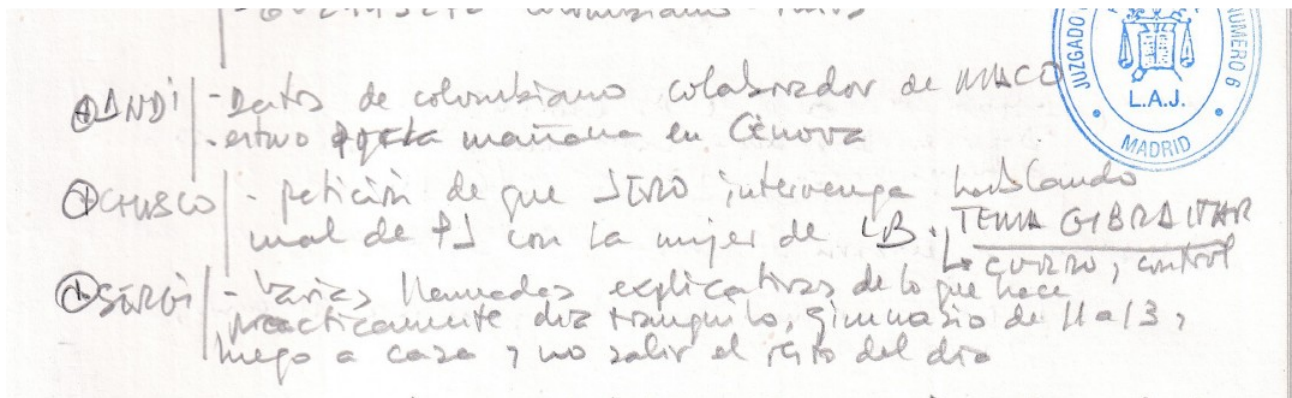 ANDI - Datos de colombiano colaborador de MACO
- estuvo esta mañana en Génova
CHUSCO - petición de que intervenga hablando
mal de PJ con la mujer de LB. TEMA GIBRALTAR
↳ CURRO, control
SERGI - Varias llamadas explicativas de lo que hace
prácticamente día tranquilo, gimnasio de 11 a 13,
luego a casa y no salir el resto del día
JUZGADO NUMERO 6
L.A.J.
MADRID